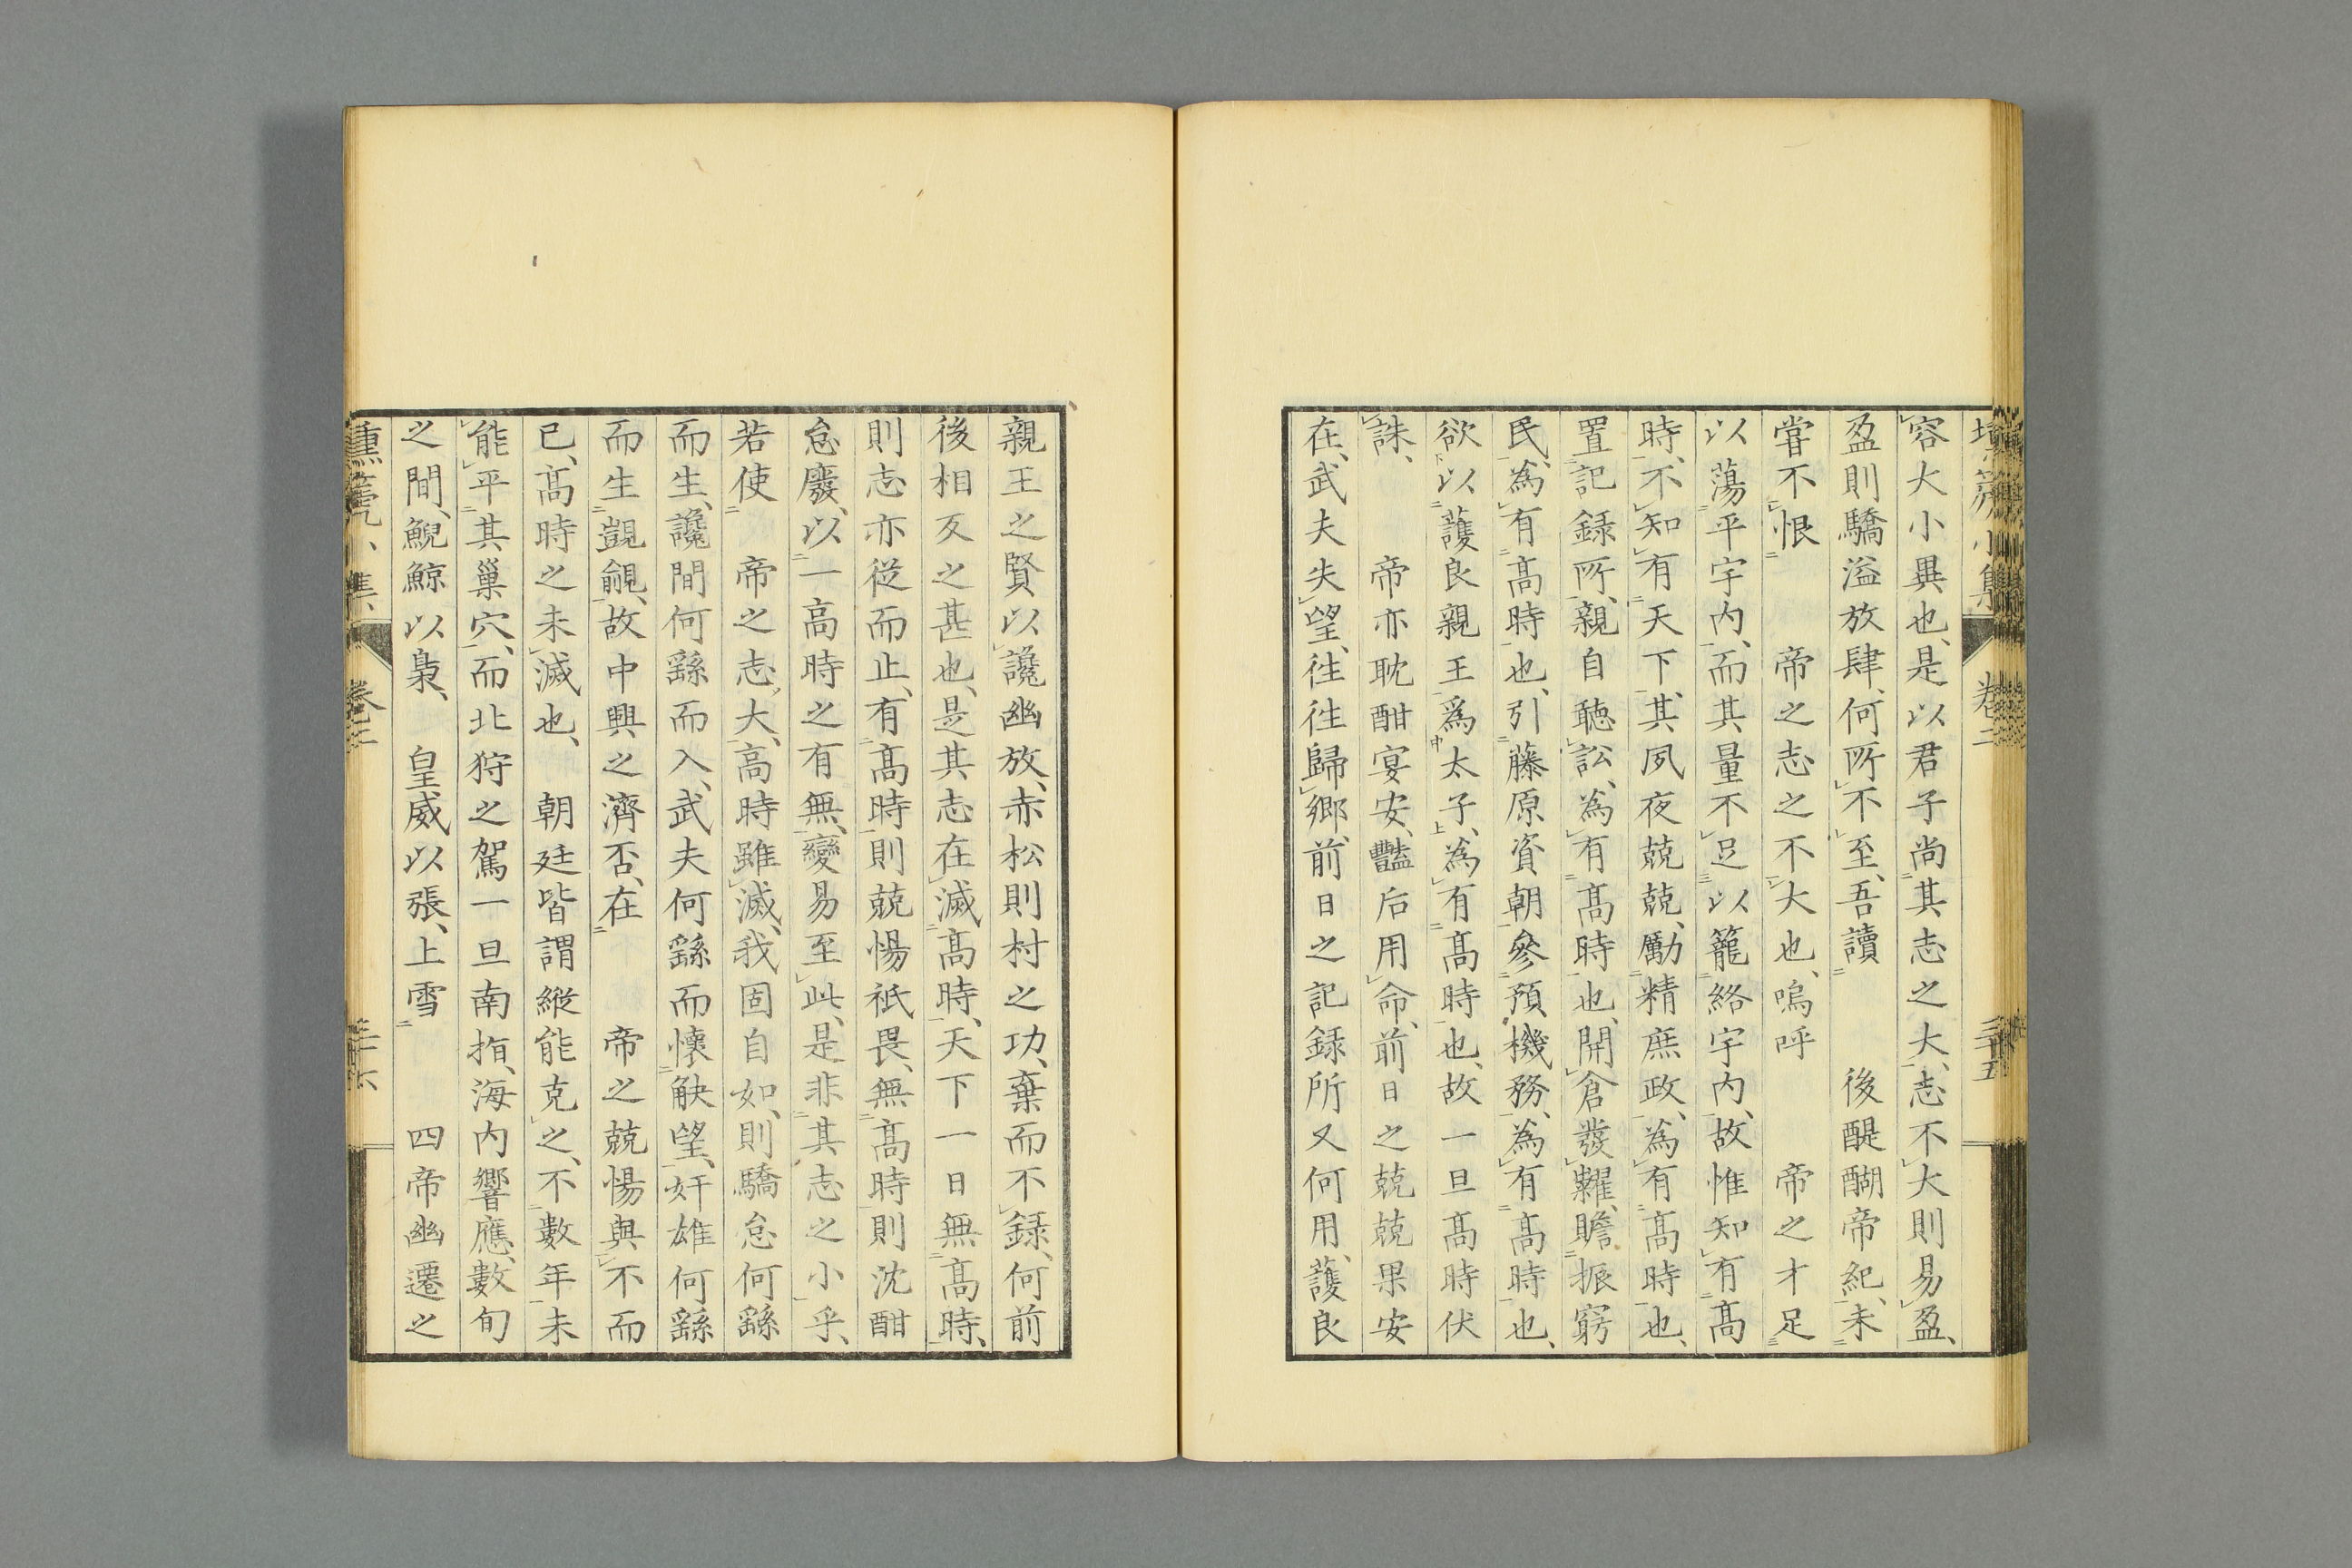 容大小異也、是以君子尚其志之大、志不大則易盈、
盈則驕溢放肆、何所不至、吾讀　後醍醐帝紀、未
嘗不恨　帝之志之不大也、嗚呼　帝之才足
以蕩平宇内、而其量不足以籠絡宇内、故惟知有髙
時、不知有天下、其夙夜兢兢、勵精庶政、為有髙時也、
置記録所、親自聴訟、為有髙時也、開倉發糶、贍振窮
民、為有髙時也、引藤原資朝參預機務、為有髙時也、
欲以護良親王爲太子、為有髙時也、故一旦髙時伏
誅、　帝亦耽酣宴安、豔后用命、前日之兢兢果安
在、武夫失望、往往歸鄉、前日之記録所又何用、護良
親王之賢以讒幽放、赤松則村之功、棄而不録、何前
後相反之甚也、是其志在滅髙時、天下一日無髙時、
則志亦從而止、有髙時則兢惕祇畏、無髙時則沈酣
怠廢、以一高時之有無、變易至此、是非其志之小乎、
若使　帝之志大、高時雖滅、我固自如、則驕怠何繇
而生、讒間何繇而入、武夫何繇而懷觖望、奸雄何繇
而生覬覦、故中興之濟否、在　帝之兢惕與不而
已、髙時之未滅也、　朝廷皆謂縱能克之、不數年未
能平其巢穴、而北狩之駕一旦南指、海内響應、數旬
之間、鯢鯨以梟、　皇威以張、上雪　四帝幽遷之